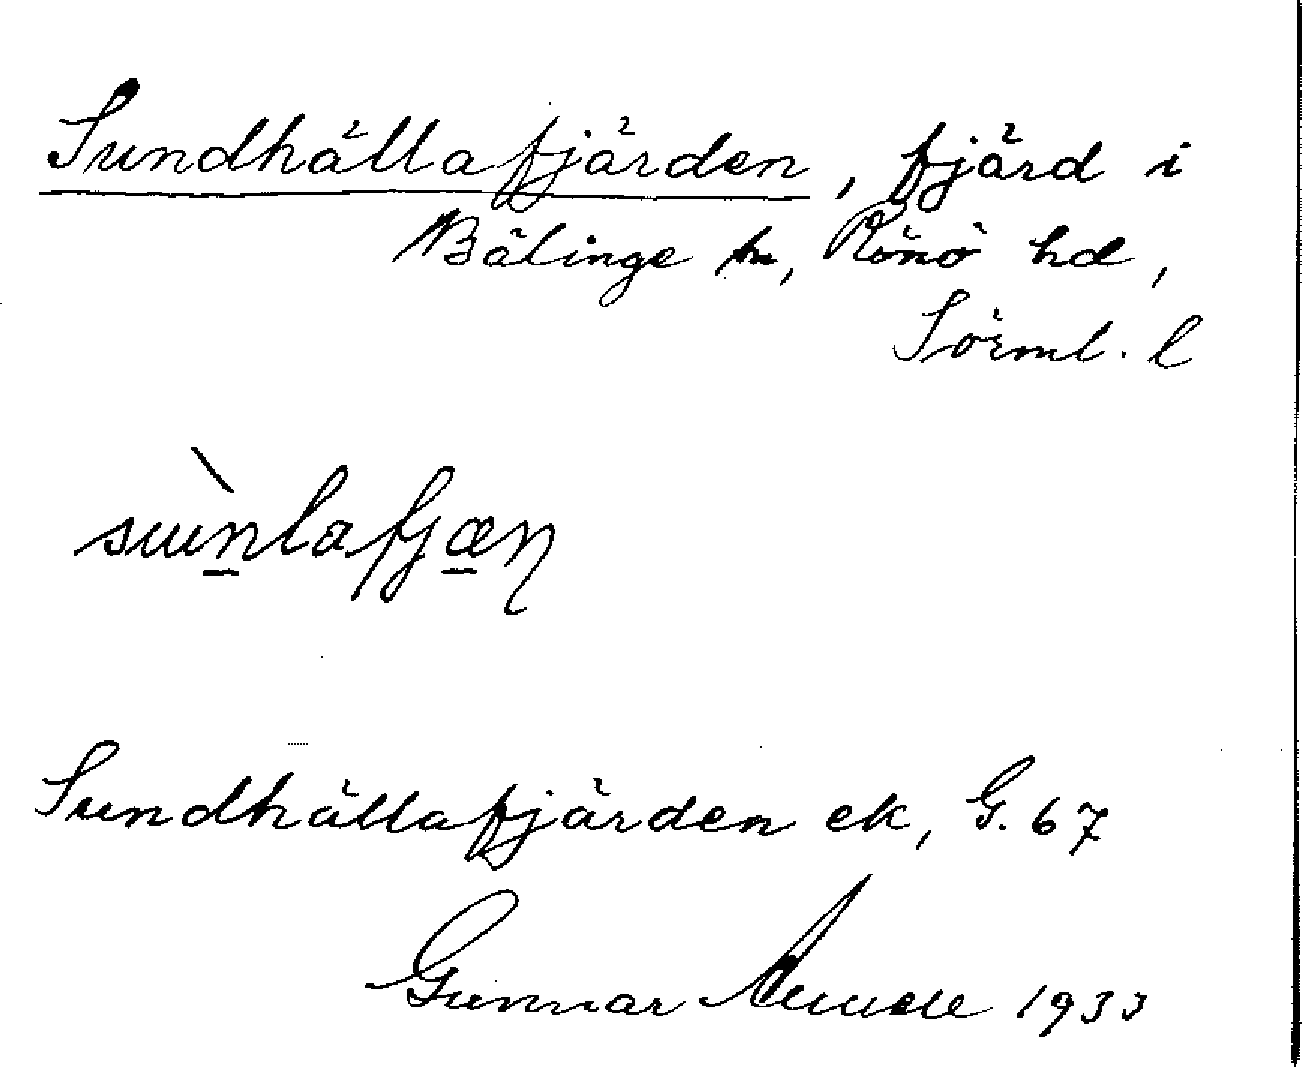 Sundhällafjärden, fjärd i
Bälinge sn, Rönö hd,
Sörml. l
sunlafjæn
Sundhällafjärden ek, G. 67
Gunnar 1933